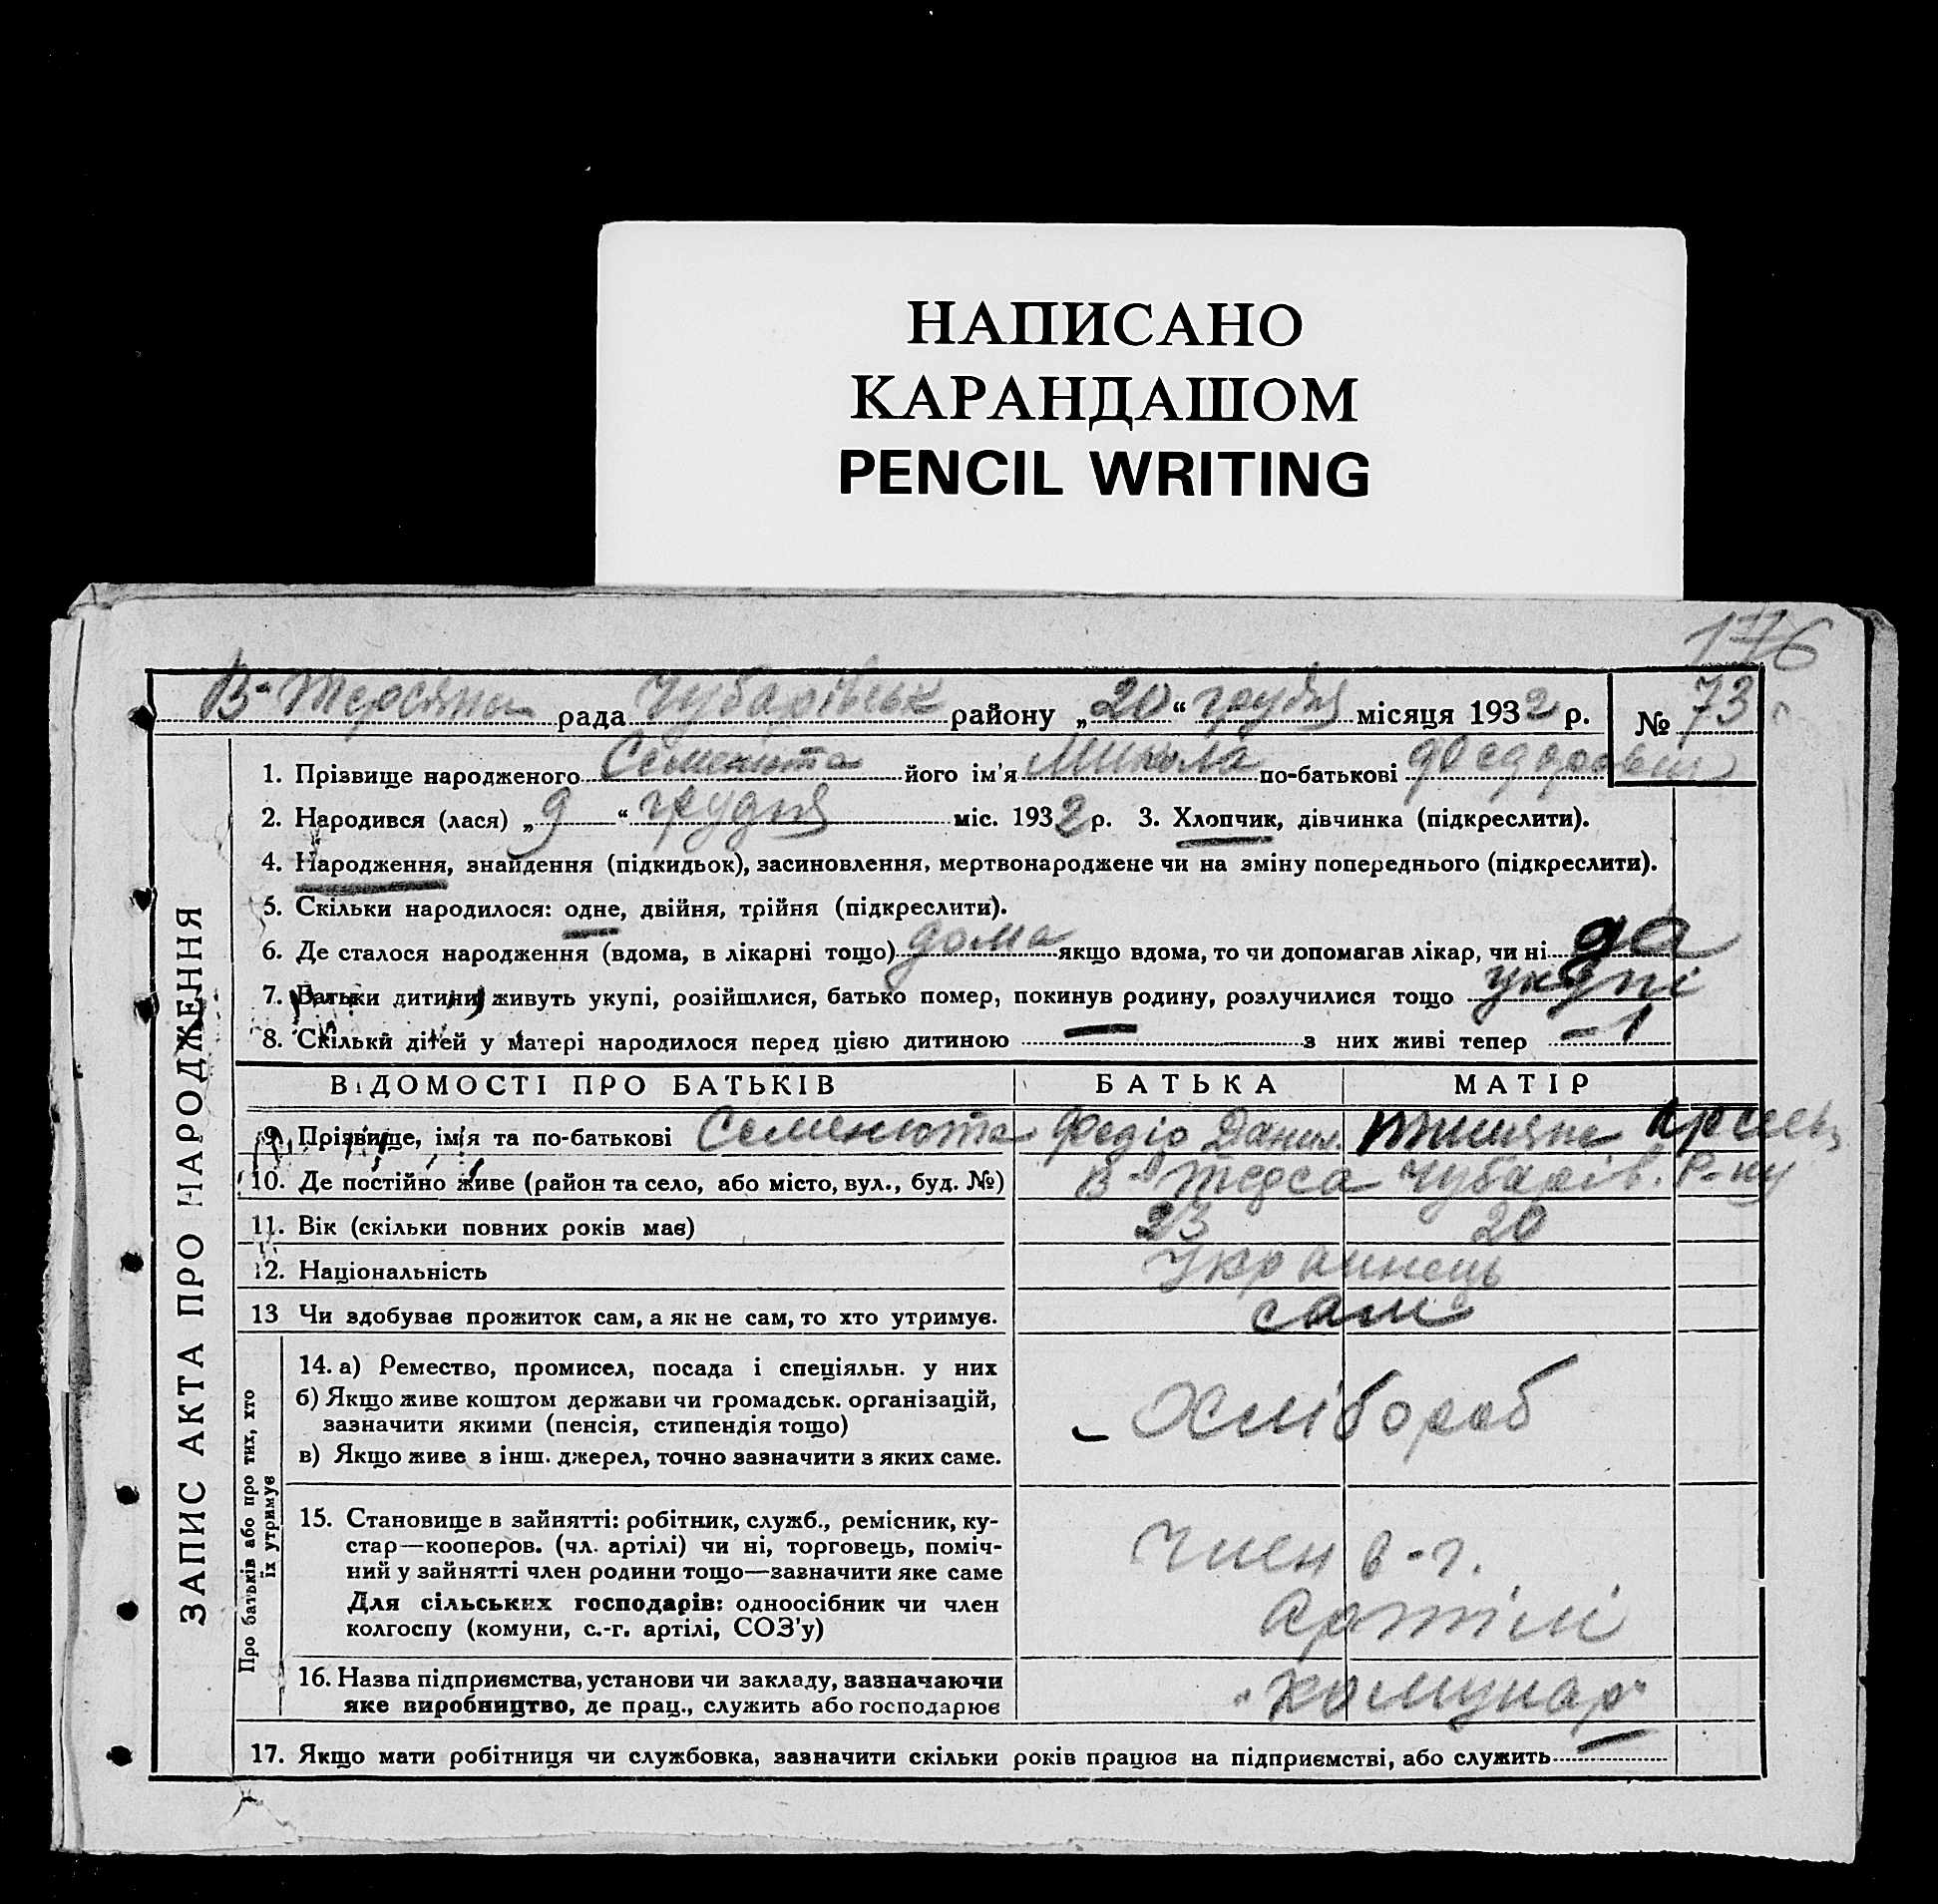 НАПИСАНО
КАРАНДАШОМ
PENCIL WRITING
176
В-Терсянн рада Чубарівськ району „20“ грудня місяця 1932 р. № 73
1. Прізвище народженого Семенюта його ім'я Микола по-батькові Федорович
2. Народився (лася) „9“ грудня міс. 1932 р. 3. Хлопчик, дівчинка (підкреслити).
4. Народження, знайдення (підкидьок), засиновлення, мертвонароджене чи на зміну попереднього (підкреслити).
5. Скільки народилося: одне, двійня, трійня (підкреслити).
6. Де сталося народження (вдома, в лікарні тощо) дома якщо вдома, то чи допомагав лікар, чи ні да
7. Батьки дитини живуть укупі, розійшлися, батько помер, покинув родину, розлучилися тощо укупі
8. Скільки дітей у матері народилося перед цією дитиною — з них живі тепер – 1
ВІДОМОСТІ ПРО БАТЬКІВ БАТЬКА МАТІР
9. Прізвище, ім'я та по-батькові Семенюта Федір Данил.
10. Де постійно живе (район та село, або місто, вул., буд. №) В-Терса Чубарів. р-ну
11. Вік (скільки повних років має) 23 20
12. Національність Украинець
13 Чи здобуває прожиток сам, а як не сам, то хто утримує. сам
14. а) Ремество, промисел, посада і спеціяльн. у них
б) Якщо живе коштом держави чи громадськ. організацій,
зазначити якими (пенсія, стипендія тощо)
в) Якщо живе з інш. джерел, точно зазначити з яких саме.
– Хлібороб
15. Становище в зайнятті: робітник, служб., ремісник, ку-
стар—кооперов. (чл. артілі) чи ні, торговець, поміч-
ний у зайнятті член родини тощо—зазначити яке саме
Для сільських господарів: одноосібник чи член
колгоспу (комуни, с.-г. артілі, СОЗ'у)
Член с-г.
Артілі
16. Назва підприємства, установи чи закладу, зазначаючи
яке виробництво, де прац., служить або господарює
"Комунар"
17. Якщо мати робітниця чи службовка, зазначити скільки років працює на підприємстві, або служить —
ЗАПИС АКТА ПРО НАРОДЖЕННЯ
Про батьків або про тих, хто
їх утримує